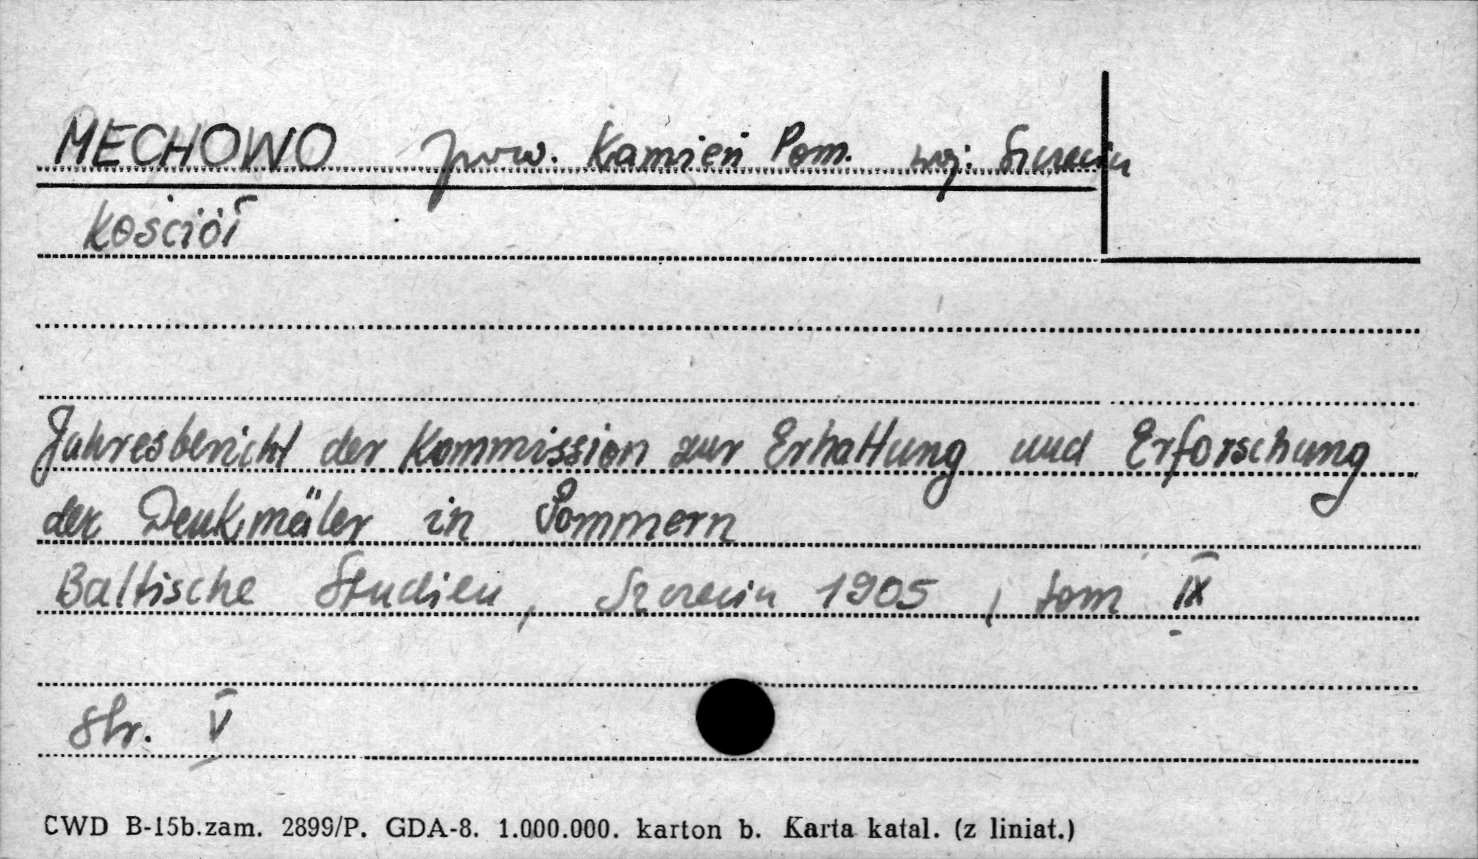 MECHOWO pow. Kamień Pom. woj. Szczecin
Kościół
Jahresbericht der Kommission zur Erhaltung und Erforschung
der Denkmäler in Pommern
Baltische Studien, Szczecin 1905, tom IX
Str. V
CWD B-15b.zam. 2899/P. GDA-8. 1.000.000. karton b. Karta katal. (z liniat.)